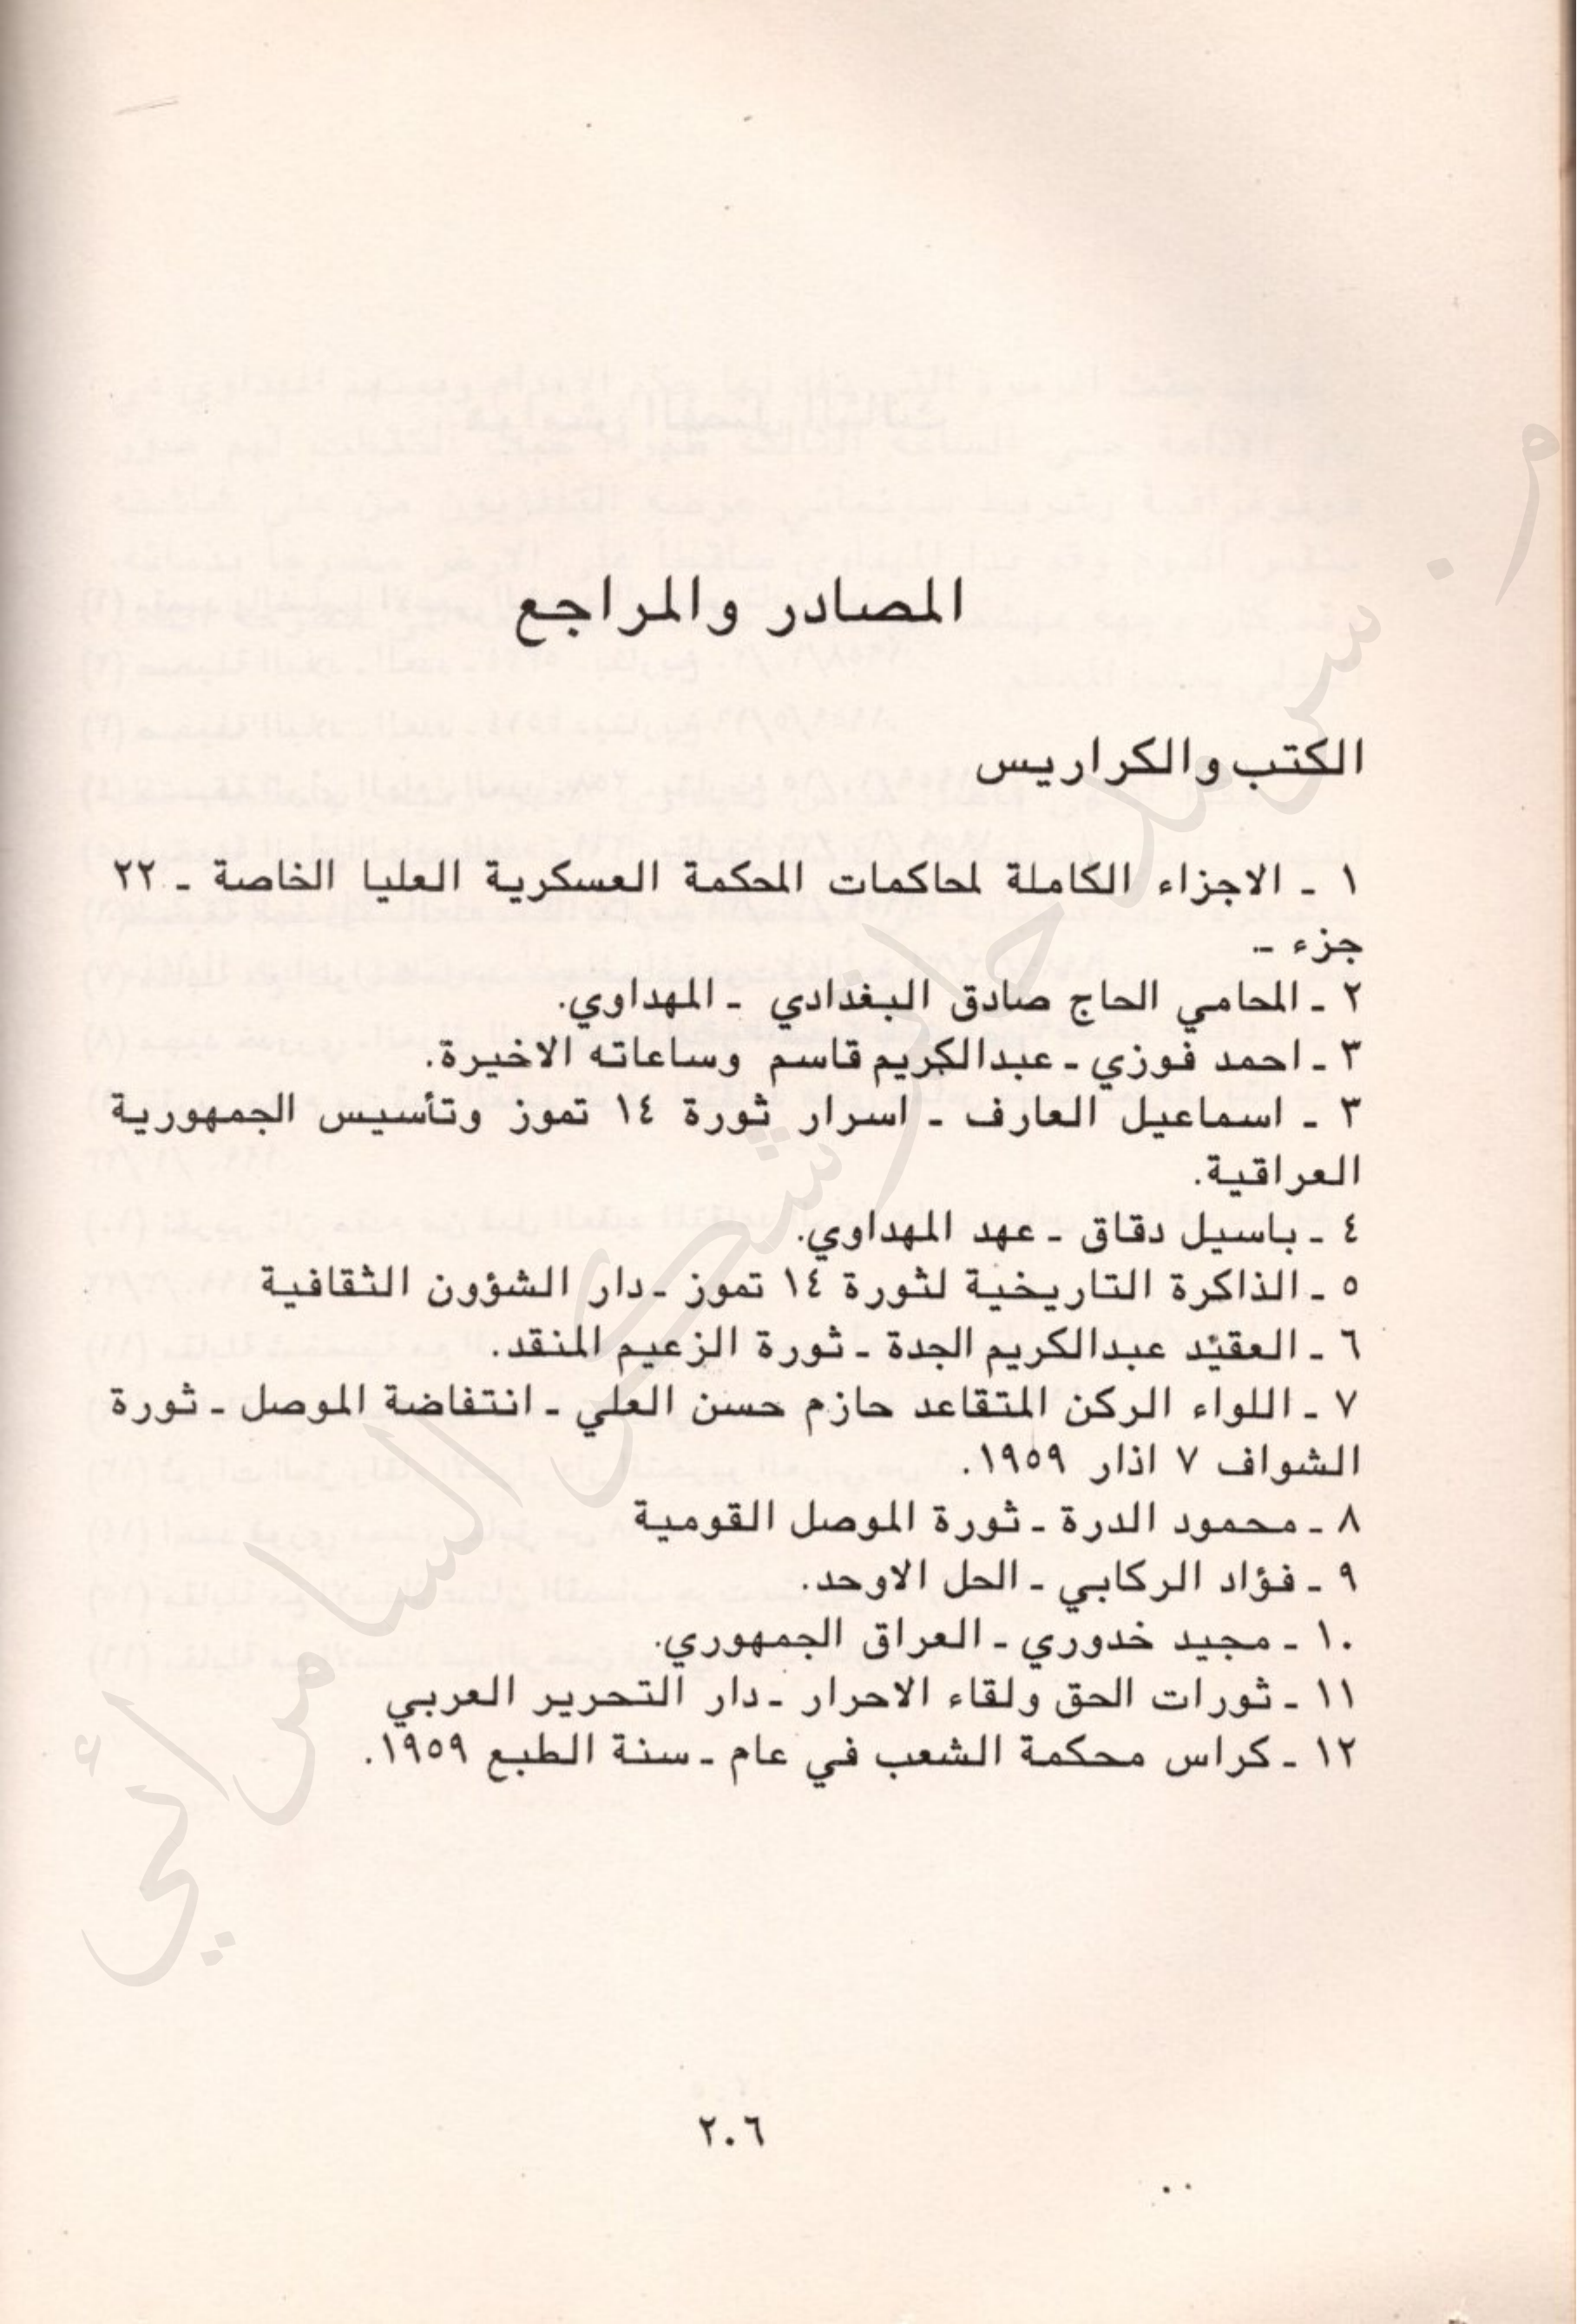 المصادر والمراجع
الكتب والكراريس
١ ـ الاجزاء الكاملة لمحاكمات المحكمة العسكرية العليا الخاصة ـ ٢٢
جزء ـ
٢ ـ المحامي الحاج صادق البغدادي ـ المهداوي.
٣ ـ احمد فوزي ـ عبدالكريم قاسم وساعاته الاخيرة.
٣ ـ اسماعيل العارف ـ اسرار ثورة ١٤ تموز وتأسيس الجمهورية
العراقية.
٤ ـ باسيل دقاق ـ عهد المهداوي.
٥ ـ الذاكرة التاريخية لثورة ١٤ تموز ـ دار الشؤون الثقافية
٦ ـ العقيد عبدالكريم الجدة ـ ثورة الزعيم المنقد.
٧ ـ اللواء الركن المتقاعد حازم حسن العلي ـ انتفاضة الموصل ـ ثورة
الشواف ٧ اذار ١٩٥٩.
٨ ـ محمود الدرة ـ ثورة الموصل القومية
٩ ـ فؤاد الركابي ـ الحل الاوحد.
١٠ ـ مجيد خدوري ـ العراق الجمهوري.
١١ ـ ثورات الحق ولقاء الاحرار ـ دار التحرير العربي
١٢ ـ كراس محكمة الشعب في عام ـ سنة الطبع ١٩٥٩.
٢٠٦